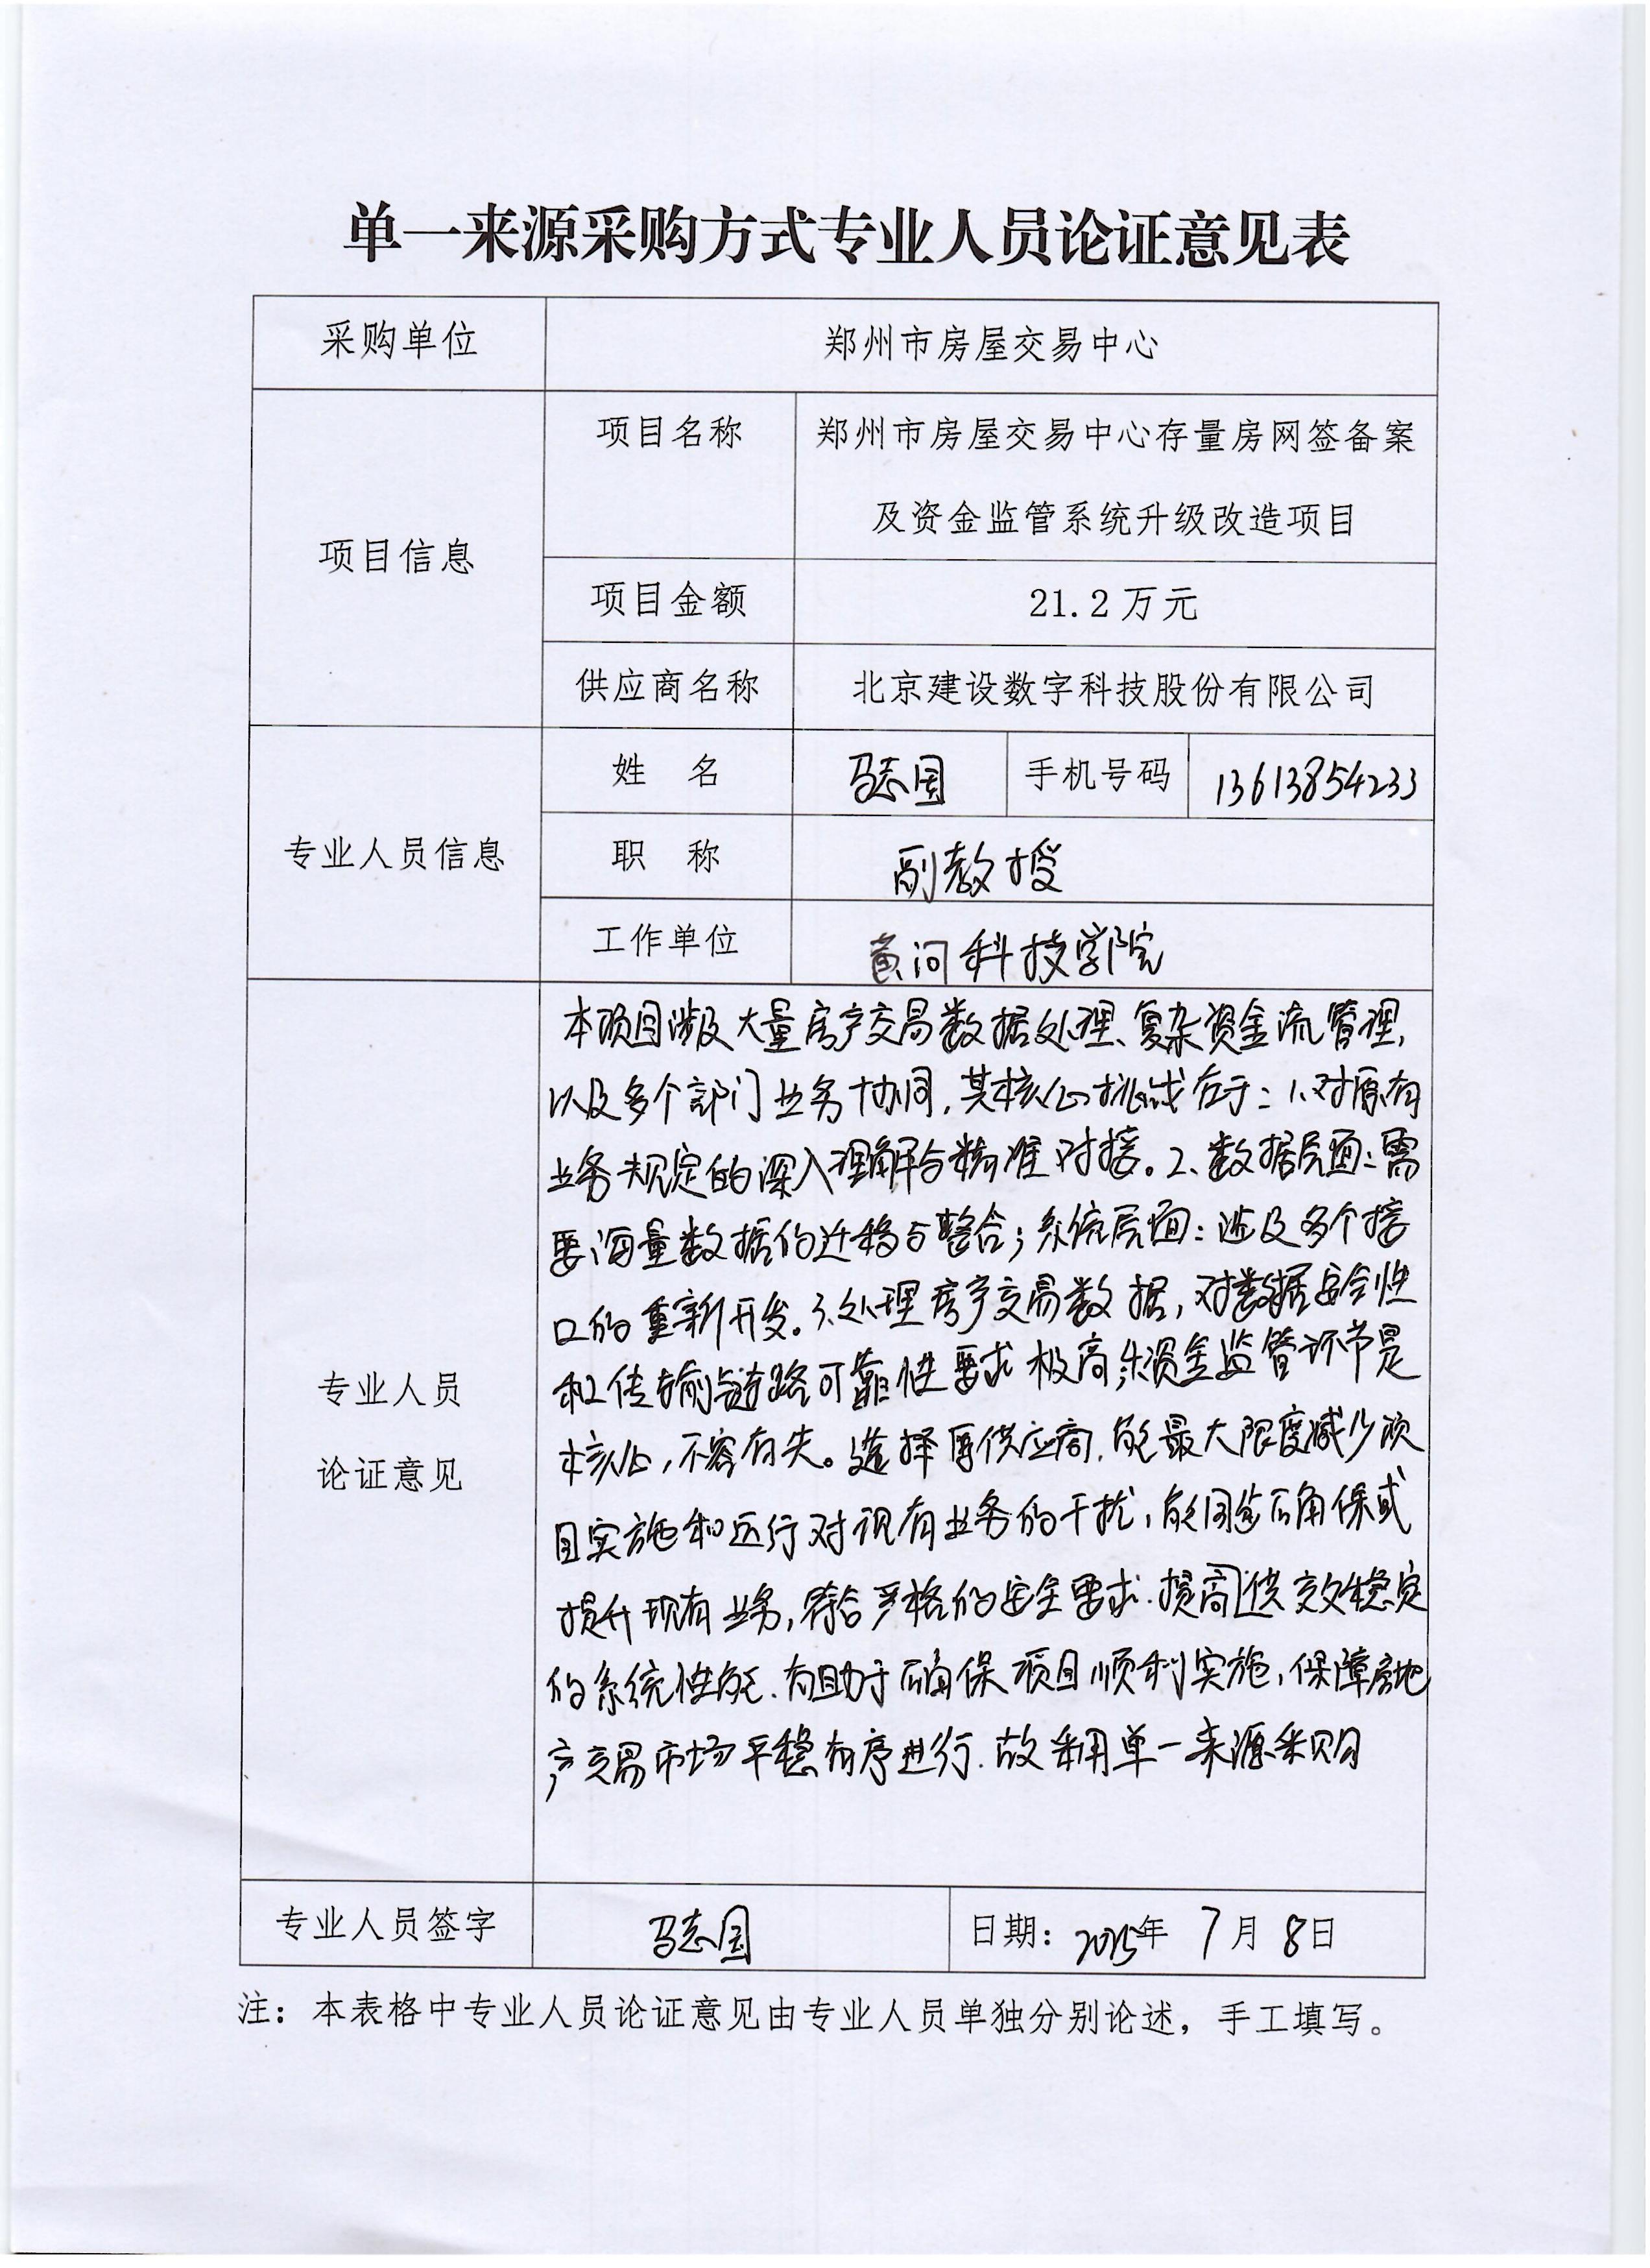 单一来源采购方式专业人员论证意见表
采购单位 郑州市房屋交易中心
项目信息
项目名称 郑州市房屋交易中心存量房网签备案
及资金监管系统升级改造项目
项目金额 21.2万元
供应商名称 北京建设数字科技股份有限公司
专业人员信息
姓 名 马志国 手机号码 13613854233
职 称 副教授
工作单位 黄河科技学院
专业人员
论证意见
本项目涉及大量房产交易数据处理、复杂资金流管理,
以及多个部门业务协同,其核心挑战在于:1、对原有
业务规定的深入理解与精准对接。2、数据层面:需
要海量数据的迁移与整合;系统层面:涉及多个接
口的重新开发。3、处理房产交易数据,对数据安全性
和传输链路可靠性要求极高,资金监管环节是
核心,不容有失。选择原供应商,能最大限度减少项
目实施和运行对现有业务的干扰,能确保或
提升现有业务,符合严格的安全要求.提高效稳定
的系统性能.有助于确保项目顺利实施,保障房地
产交易市场平稳有序进行.故采用单一来源采购
专业人员签字 马志国 日期:2025年7月8日
注:本表格中专业人员论证意见由专业人员单独分别论述,手工填写。